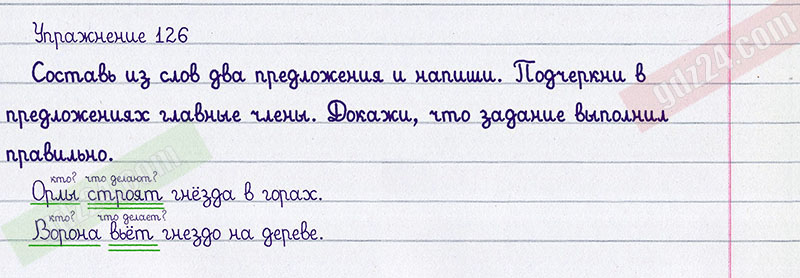 Упражнение 126
Составь из слов два предложения и напиши. Подчеркни в
предложениях главные члены. Докажи, что задание выполнил
правильно.
кто? что делают?
Орлы строят гнёзда в горах.
кто? что делает?
Ворона вьёт гнездо на дереве.
gdz24.com
gdz24.com